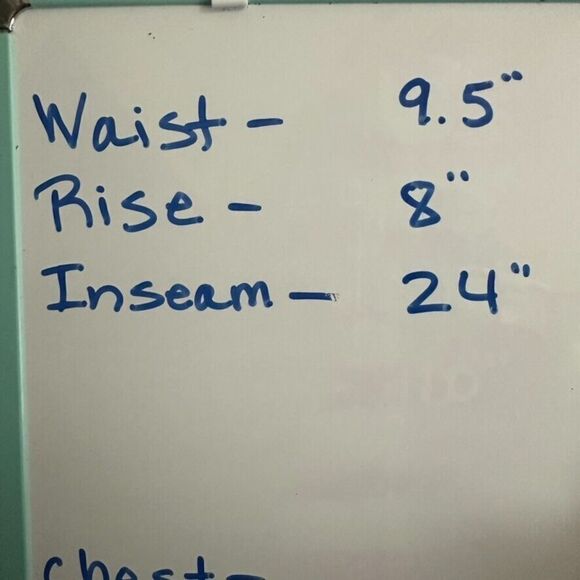 Waist - 9.5"
Rise - 8"
Inseam - 24"
Chest -